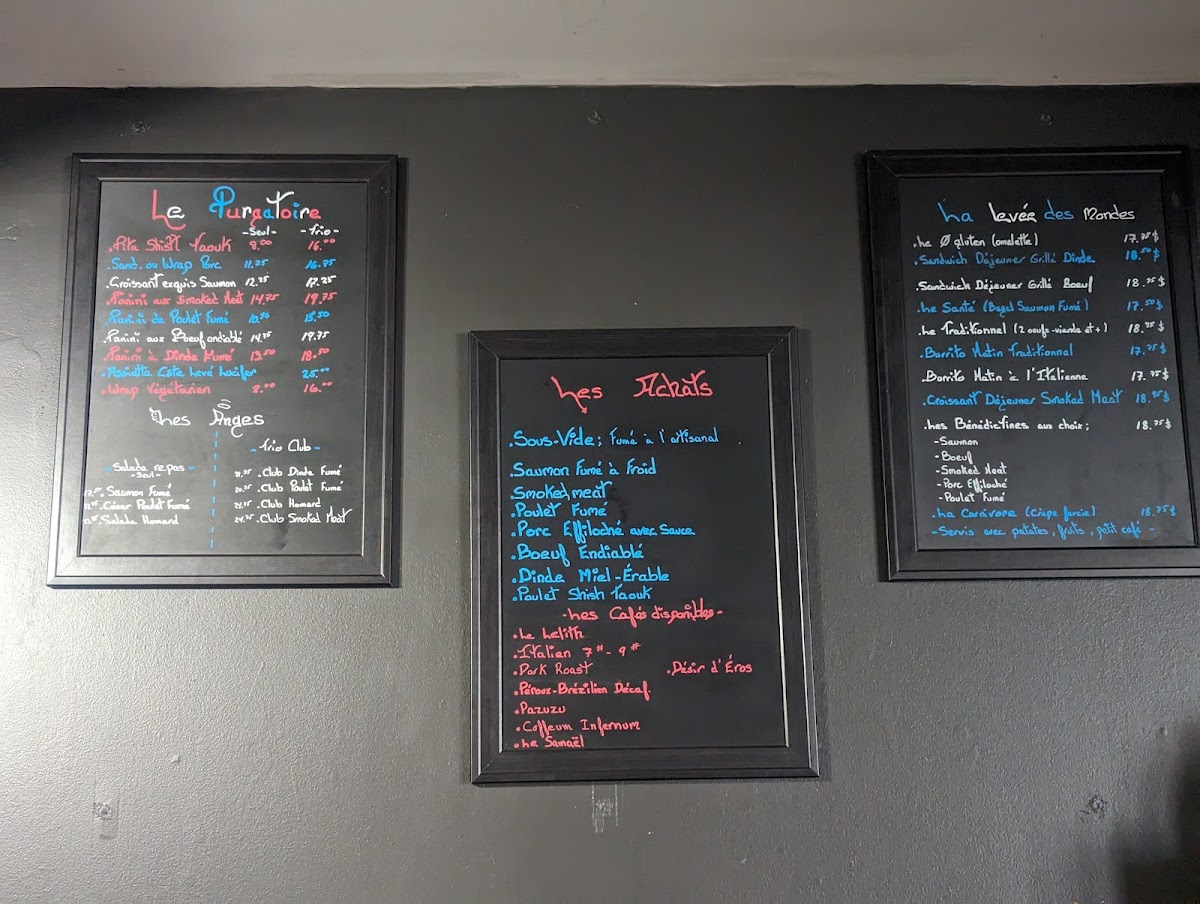 Le Purgatoire
-Seul- -Trio-
.Pita Shish Taouk 8.00 16.00
.Sand. ou Wrap Porc 11.25 16.75
.Croissant exquis Saumon 12.25 17.25
.Panini aux Smoked Meat 14.75 19.75
.Panini de Poulet Fumé 10.50 15.50
.Panini aux Boeuf endiablé 14.75 19.75
.Panini à Dinde Fumé 13.50 18.50
.Assiette Côte levé Lucifer 25.00
.Wrap Végétarien 8.00 16.00
Les Anges
-Trio Club-
-Salade repas-
-Seul-
.Saumon Fumé
.César Poulet Fumé
.Salade Homard
.Club Dinde Fumé
.Club Poulet Fumé
.Club Homard
.Club Smoked Meat
Les Achats
.Sous-Vide; Fumé à l'artisanal
.Saumon Fumé à Froid
Smoked meat
.Poulet Fumé
.Porc Effiloché avec Sauce
.Boeuf Endiablé
.Dinde Miel-Érable
.Poulet Shish Taouk
-Les Cafés disponibles-
.Le Lelith
.Italien 7# - 9#
.Dark Roast .Désir d'Éros
.Péroux-Brézilien Décaf.
.Pazuzu
.Coffeum Infernum
.Le Samaël
La levée des Mondes
.Le Ø gluten (omelette) 17.75$
.Sandwich Déjeuner Grillé Dinde 18.50$
.Sandwich Déjeuner Grillé Boeuf 18.75$
.Le Santé (Bagel Saumon Fumé) 17.50$
.Le Traditionnel (2 oeufs-viande et+) 18.75$
.Burrito Matin Traditionnel 17.75$
.Burrito Matin à l'Italienne 17.75$
.Croissant Déjeuner Smoked Meat 18.75$
.Les Bénédictines aux choix; 18.75$
-Saumon
-Boeuf
-Smoked Meat
-Porc Effiloché
-Poulet Fumé
.La Carnivore (Crêpe farcie) 18.75$
-Servis avec patates, fruits, petit café-